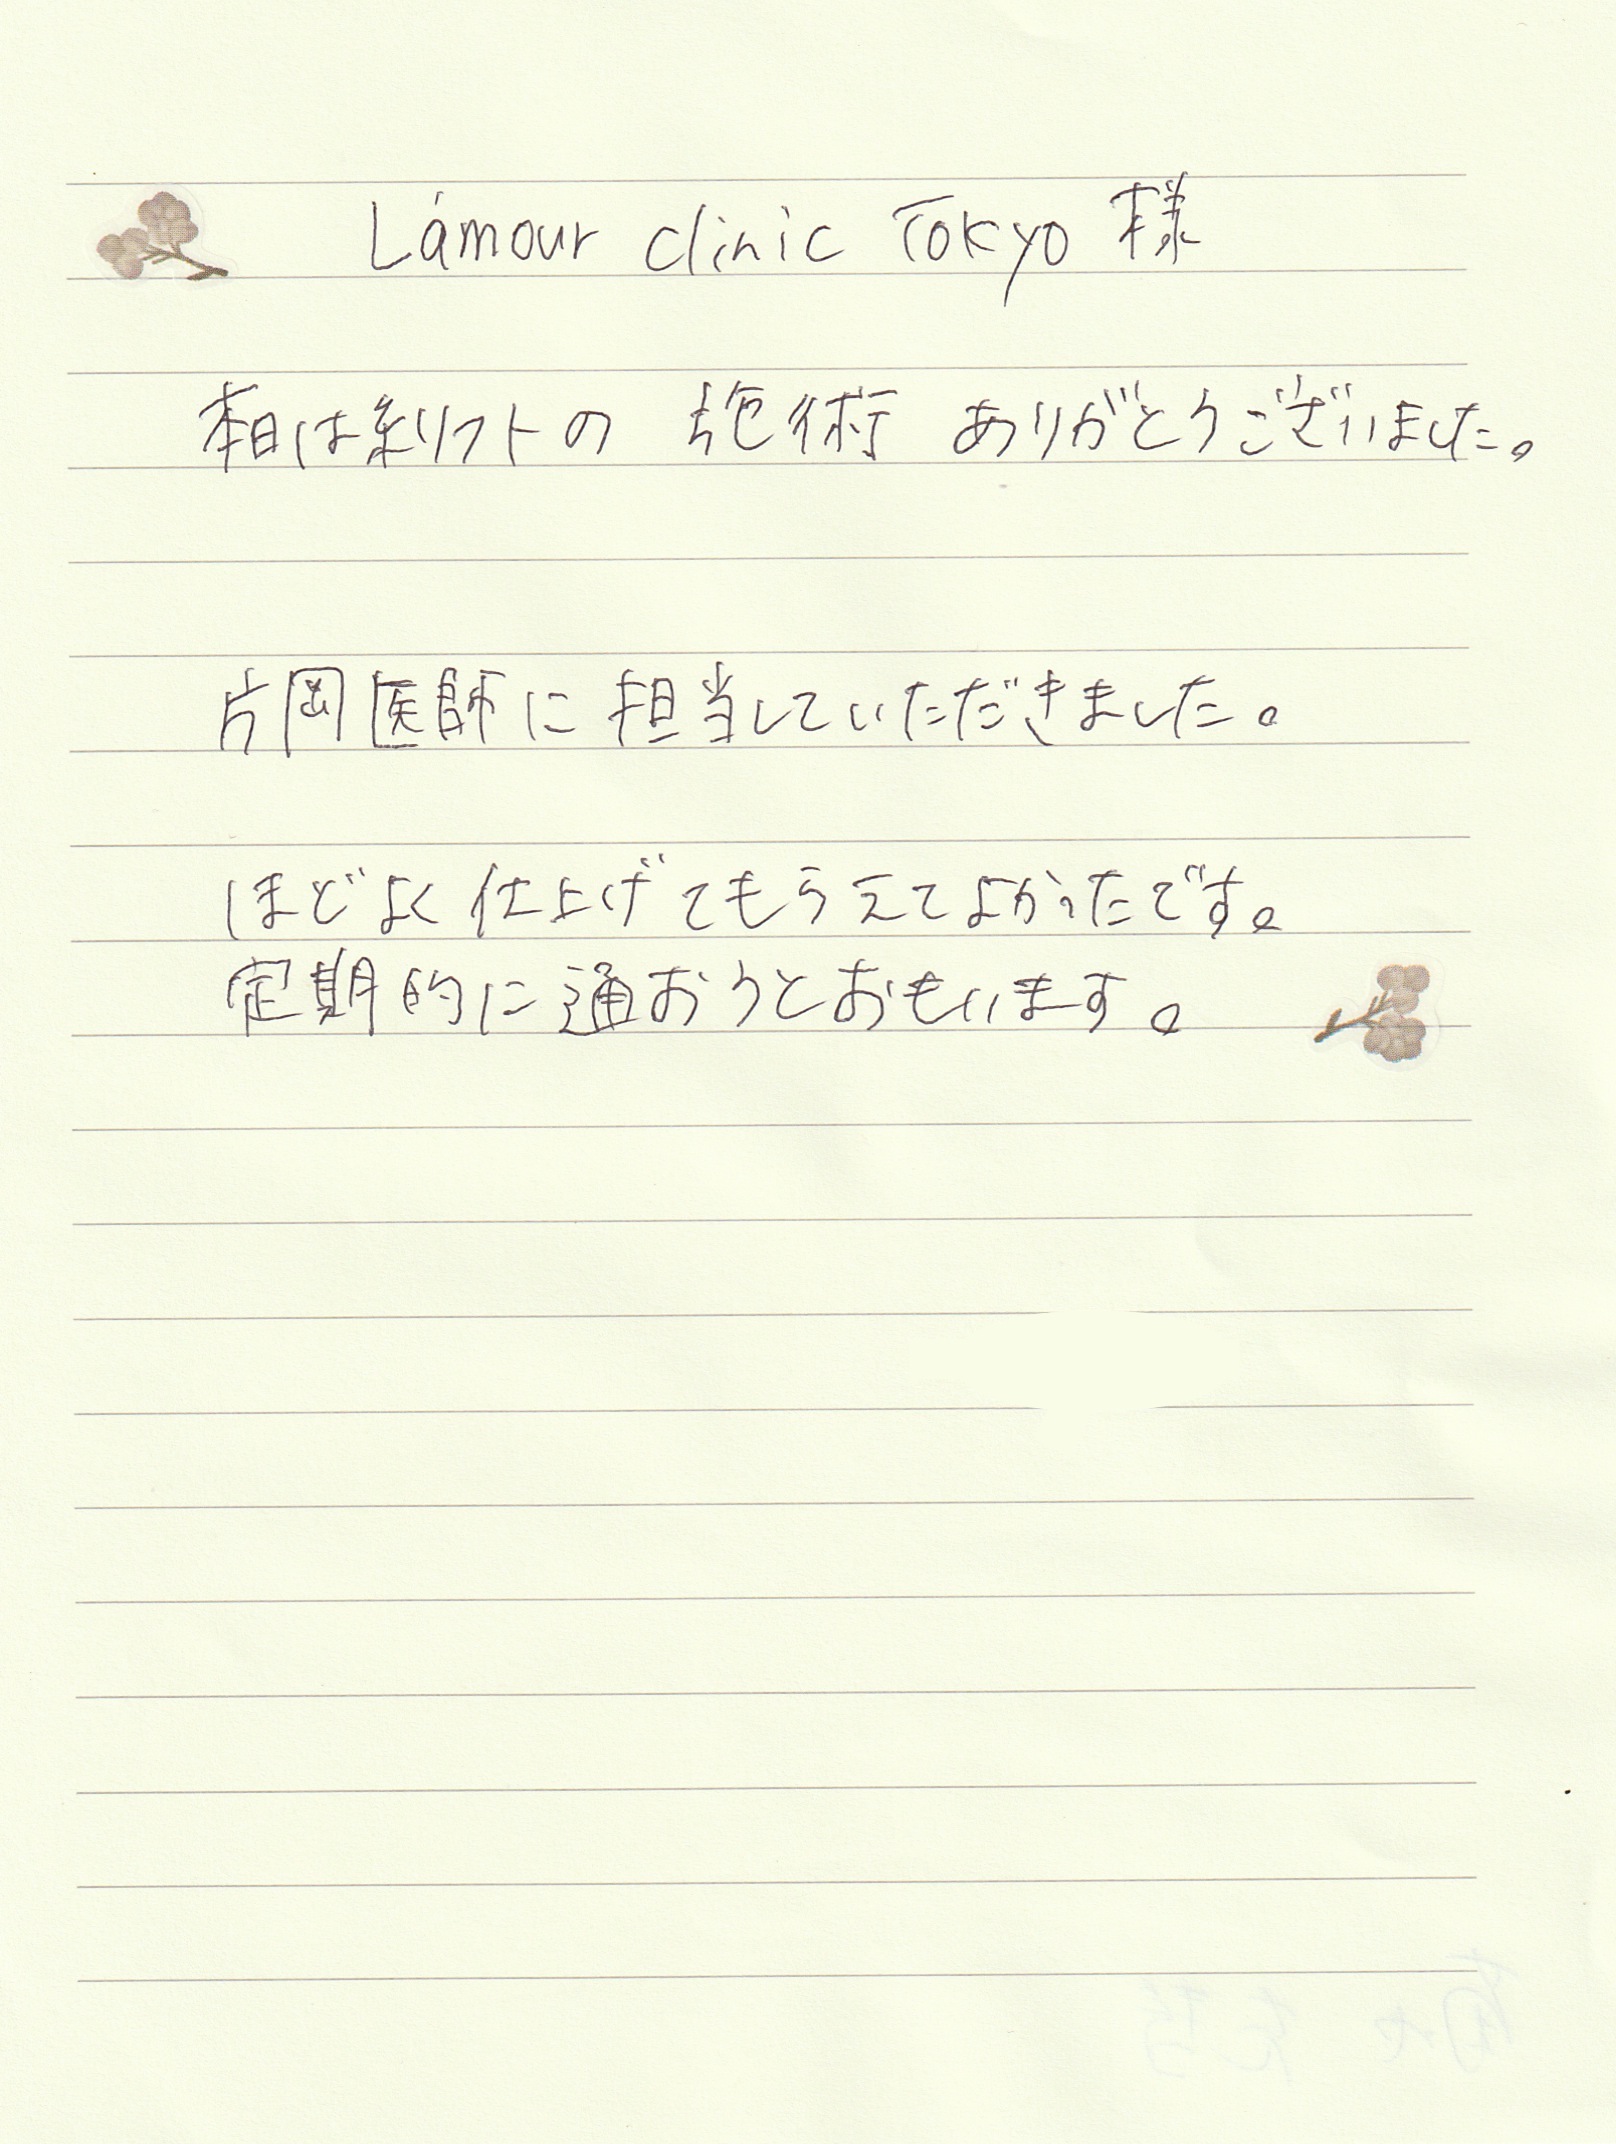 L'amour clinic Tokyo 様
本日は糸リフトの 施術 ありがとうございました。
片岡医師に担当していただきました。
ほどよく仕上げてもらえてよかったです。
定期的に通おうとおもいます。